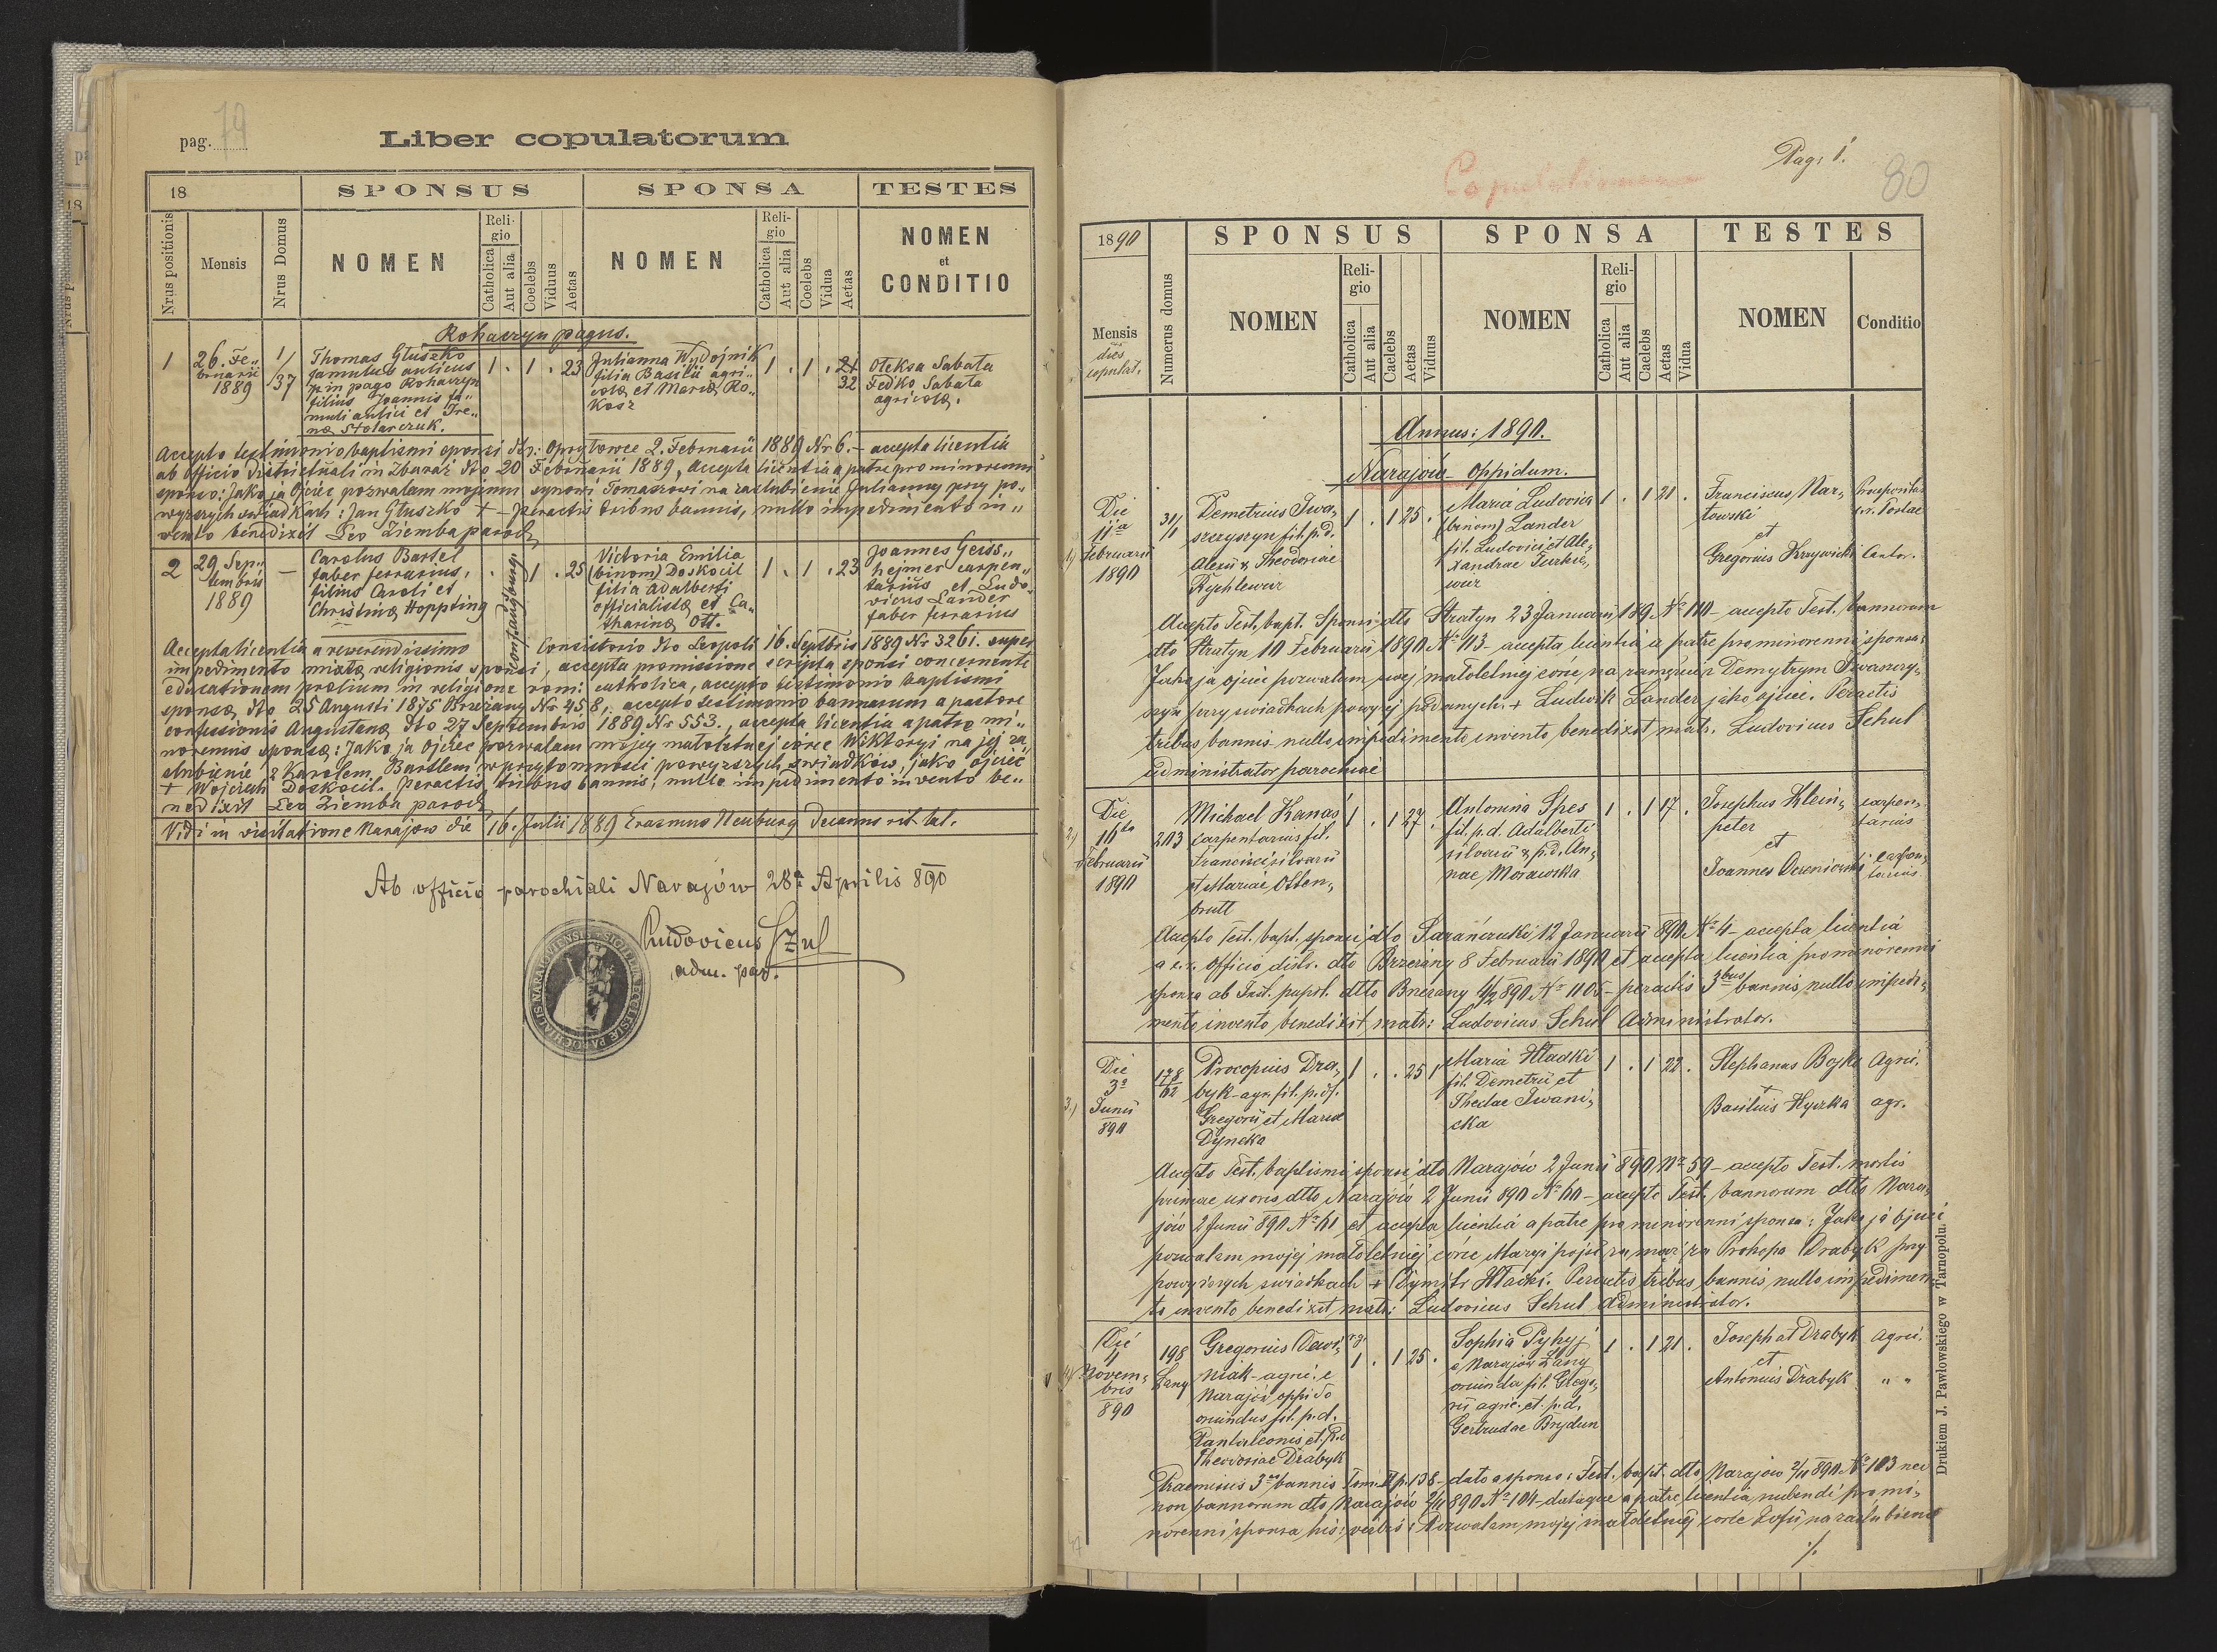 pag. 79
Liber copulatorum
18
SPONSUS
SPONSA
TESTES
Nrus positionis
Mensis
Nrus Domus
NOMEN
Religio
Catholica
Aut alia
Coelebs
Viduus
Aetas
NOMEN
Religio
Catholica
Aut alia
Coelebs
Vidua
Aetas
NOMEN
et
CONDITIO
Rohaczyn pagus.
1
26. Fe„
bruarii
1889
1/
/37
Thomas Głuszko
famulus aulicus
in pago Rohaczyn
filius Joannis fa„
muli aulici et Ire„
na Stolarczuk.
1 . 1 . 23
Julianna Wydojnik
filia Basilii agri„
colæ et Maria Ro„
kosz
1 . 1 . 21
32
Oleksa Sabata
Fedko Sabata
agricolæ.
Accepto testimonio baptismi sponsi dto: Opryłowce 2. Februarii 1889 Nr. 6. – accepta licentia
ab officio districtuali in Zbaraż dto 20 Februarii 1889, accepta licentia a patre pro minorenni
sponso: Jako ja Ojciec pozwalam mojemu synowi Tomaszowi na zaślubienie Julianny przy po„
wyższych świadkach: Jan Głuszko + – peractis tribus bannis, nullo impedimento in„
vento benedixit Leo Ziemba paroch
2
29. Sep„
tembris
1889
—
Carolus Bartel
faber ferrarius,
filius Caroli et
Christina Hoppting
. conf. augsburg. 1 . 25
Victoria Emilia
(binom) Doskocil
filia Adalberti
officialista et Ca„
tharina Ott.
1 . 1 . 23
Joannes Geiss„
hejmer carpen„
tarius et Ludo„
vicus Lander
faber ferrarius
Accepta licentia a reverendissimo Consistorio dto Leopoli 16. Septbris 1889 Nr 3261. super
impedimento mixta religionis sponsi, accepta promissione scripta sponsi concernente
educationem prolium in religione rom: catholica, accepto testimonio baptismi
sponsæ dto 25 Augusti 1875 Brzeżany Nr 458, accepto testimonio bannorum a pastore
confessionis Augustana dto 27 Septembris 1889 Nr 553., accepta licentia a patre mi„
norennis sponsæ: Jako ja Ojciec pozwalam mojej małoletniej córce Wiktoryi na jej za„
ślubienie z Karolem Bartlem w przytomności powyższych świadków, jako ojciec
+ Wojciech Doskocil. Peractis tribus bannis, nullo impedimento invento be„
nedixit Leo Ziemba paroch
Vidi in visitatione Narajow die 16. Julii 1889 Erasmus Neuburg Decanus rit. lat.
Ab officio parochiali Narajów 28a Aprilis 890
Ludovicus Szul
adm. par.
Pag: 1.
80
1890
SPONSUS
SPONSA
TESTES
Mensis
dies
copulat.
Numerus domus
NOMEN
Religio
Catholica
Aut alia
Caelebs
Aetas
Viduus
NOMEN
Religio
Catholica
Aut alia
Caelebs
Aetas
Vidua
NOMEN
Conditio
Annus: 1890.
Narajów oppidum.
1.)
Die
11a
Februarii
1890
31/1
Demetrius Iwa„
szczyszyn fil. p.d.
Alexii & Theodoziae
Rychlewicz
1 . 1 25 .
Maria Ludovica
(binom) Lander
fil. Ludovici et Ale„
xandrae Jurkie„
wicz
1 . 1 21 .
Franciscus Nar„
towski
et
Gregorius Krzywicki
Cantor.
Accepto Test. bapt. Sponsi dto Stratyn 23 Januarii 189 No 110 – accepto Test. bannorum
dto Stratyn 10 Februarii 1890 No 113 – accepta licentia a patre pro minorenni sponsa:
Jako ja ojciec pozwalam swej małoletniej córce na zamęście z Demytrym Iwaszczy„
szyn przy świadkach powyżej podanych. + Ludwik Lander jako ojciec. Peractis
tribus bannis nullo impedimento invento, benedixit matr. Ludovicus Schul
administrator parochiae
2.)
Die
16to
Februarii
1890
203
Michael Kanas
carpentarius fil.
Francisci silvarii
et Mariae Osten„
brutt
1 . 1 27 .
Antonina Spes
fil. p.d. Adalberti
silvarii & p.d. An„
nae Morawska
1 . 1 17 .
Josephus Klein„
peter
et
Joannes
carpen„
tarius
carpen„
tarius
Accepto Test. bapt. sponsi dto Sarańczuki 12 Januarii 890 No 4 – accepta licentia
a c.r. officio distr. dto Brzeżany 8 Februarii 1890 et accepta licentia pro minorenni
sponsa ab Inst. pupil. dtto Brzeżany 4/2 890 No 1105 – peractis 3bus bannis nullo impedi„
mento invento benedixit matr: Ludovicus Schul Administrator.
3.)
Die
3a
Junii
890
178
62
Procopius Dra„
byk – agr. fil. p. df.
Gregorii et Maria
Dyncka
1 . . 25 1
Maria Hładki
fil. Demetrii et
Theclae Iwani„
cka
1 . 1 22 .
Stephanus Bojko
et
Basilius Hyczka
Agri.
agr.
Accepto Test. baptismi sponsi dto Narajów 2 Junii 890 No 59 – accepto Test. mortis
primae uxoris dtto Narajów 2 Junii 890 No 60 – accepto Test. bannorum dtto Nara„
jów 2 Junii 890 No 61 et accepta licentia a patre pro minorenni sponsa: Jako ja Ojciec
pozwalam mojej małoletniej córce Maryi pojść za mąż za Prokopa Drabyk przy
powyższych świadkach + Dymitr Hładki. Peractis tribus bannis nullo impedimen„
to invento benedixit matr: Ludovicus Schul Administrator.
4.)
Die
4
Novem„
bris
890
198
Łany
Gregorius Dawi„
niak – agric. e
Narajów oppido
oriundus fil. p.d.
Pantaleonis et P.d.
Theodosiae Drabyk
r.g.
1 . 1 25 .
Sophia Pyhyj
e Narajów Łany
oriunda fil. Grego„
rii agric. et p.d.
Gertrudae Brydun
1 . 1 21 .
Josephat Drabyk
et
Antonius Drabyk
Agric.
„ „
Praemissis 3us bannis Tom. II p. 138 – dato a sponso: Test. bapt. dto Narajów 2/11 890 No 103 nec
non bannorum dto Narajów 2/11 890 No 104 – dataque a patre licentia nubendi pro mi„
norenni sponsa his verbis: Pozwalam mojej małoletniej córce Zofii na zaślubienie
./.
Drukiem J. Pawłowskiego w Tarnopolu.